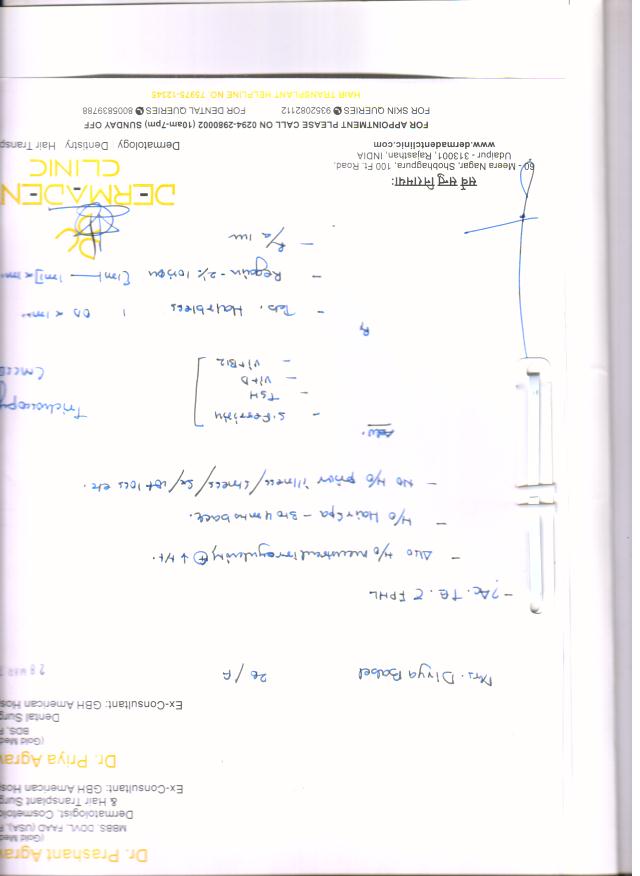 Dr. Prashant Agra
(Gold Me
MBBS, DDVL, FAAD (USA),
Dermatologist, Cosmetolo
& Hair Transplant Surg
Ex-Consultant: GBH American Hos
Dr. Priya Agrav
(Gold Me
BDS,
Dental Surg
Ex-Consultant: GBH American Hos
28 MAR
Mrs. Divya Babel 26/F
- ? Ac. TE. c FPHL
- Also H/o menstrual irregularity + ↓ Ht.
- H/o Hair Spa - 3 to 4 mns back.
- No H/o prior illness/stress/Sx/wt loss etc.
Adv.
- S. Ferritin
- TSH
- Vit D
- Vit B12
Trichoscopy
Rx
- Tab. Hairbless 1 OD x 1mn
- Regain - 2% lotion [1ml — 1ml] x 1mn
- R/a 1m
DERMADEN
CLINIC
Dermatology Dentistry Hair Transp
सर्वे सन्तु निरामया:
60 - Meera Nagar, Shobhagpura, 100 Ft. Road,
Udaipur - 313001, Rajasthan, INDIA
www.dermadentclinic.com
FOR APPOINTMENT PLEASE CALL ON 0294-2980002 (10am-7pm) SUNDAY OFF
FOR SKIN QUERIES 9352082112 FOR DENTAL QUERIES 8005839788
HAIR TRANSPLANT HELPLINE NO. 75975-12345